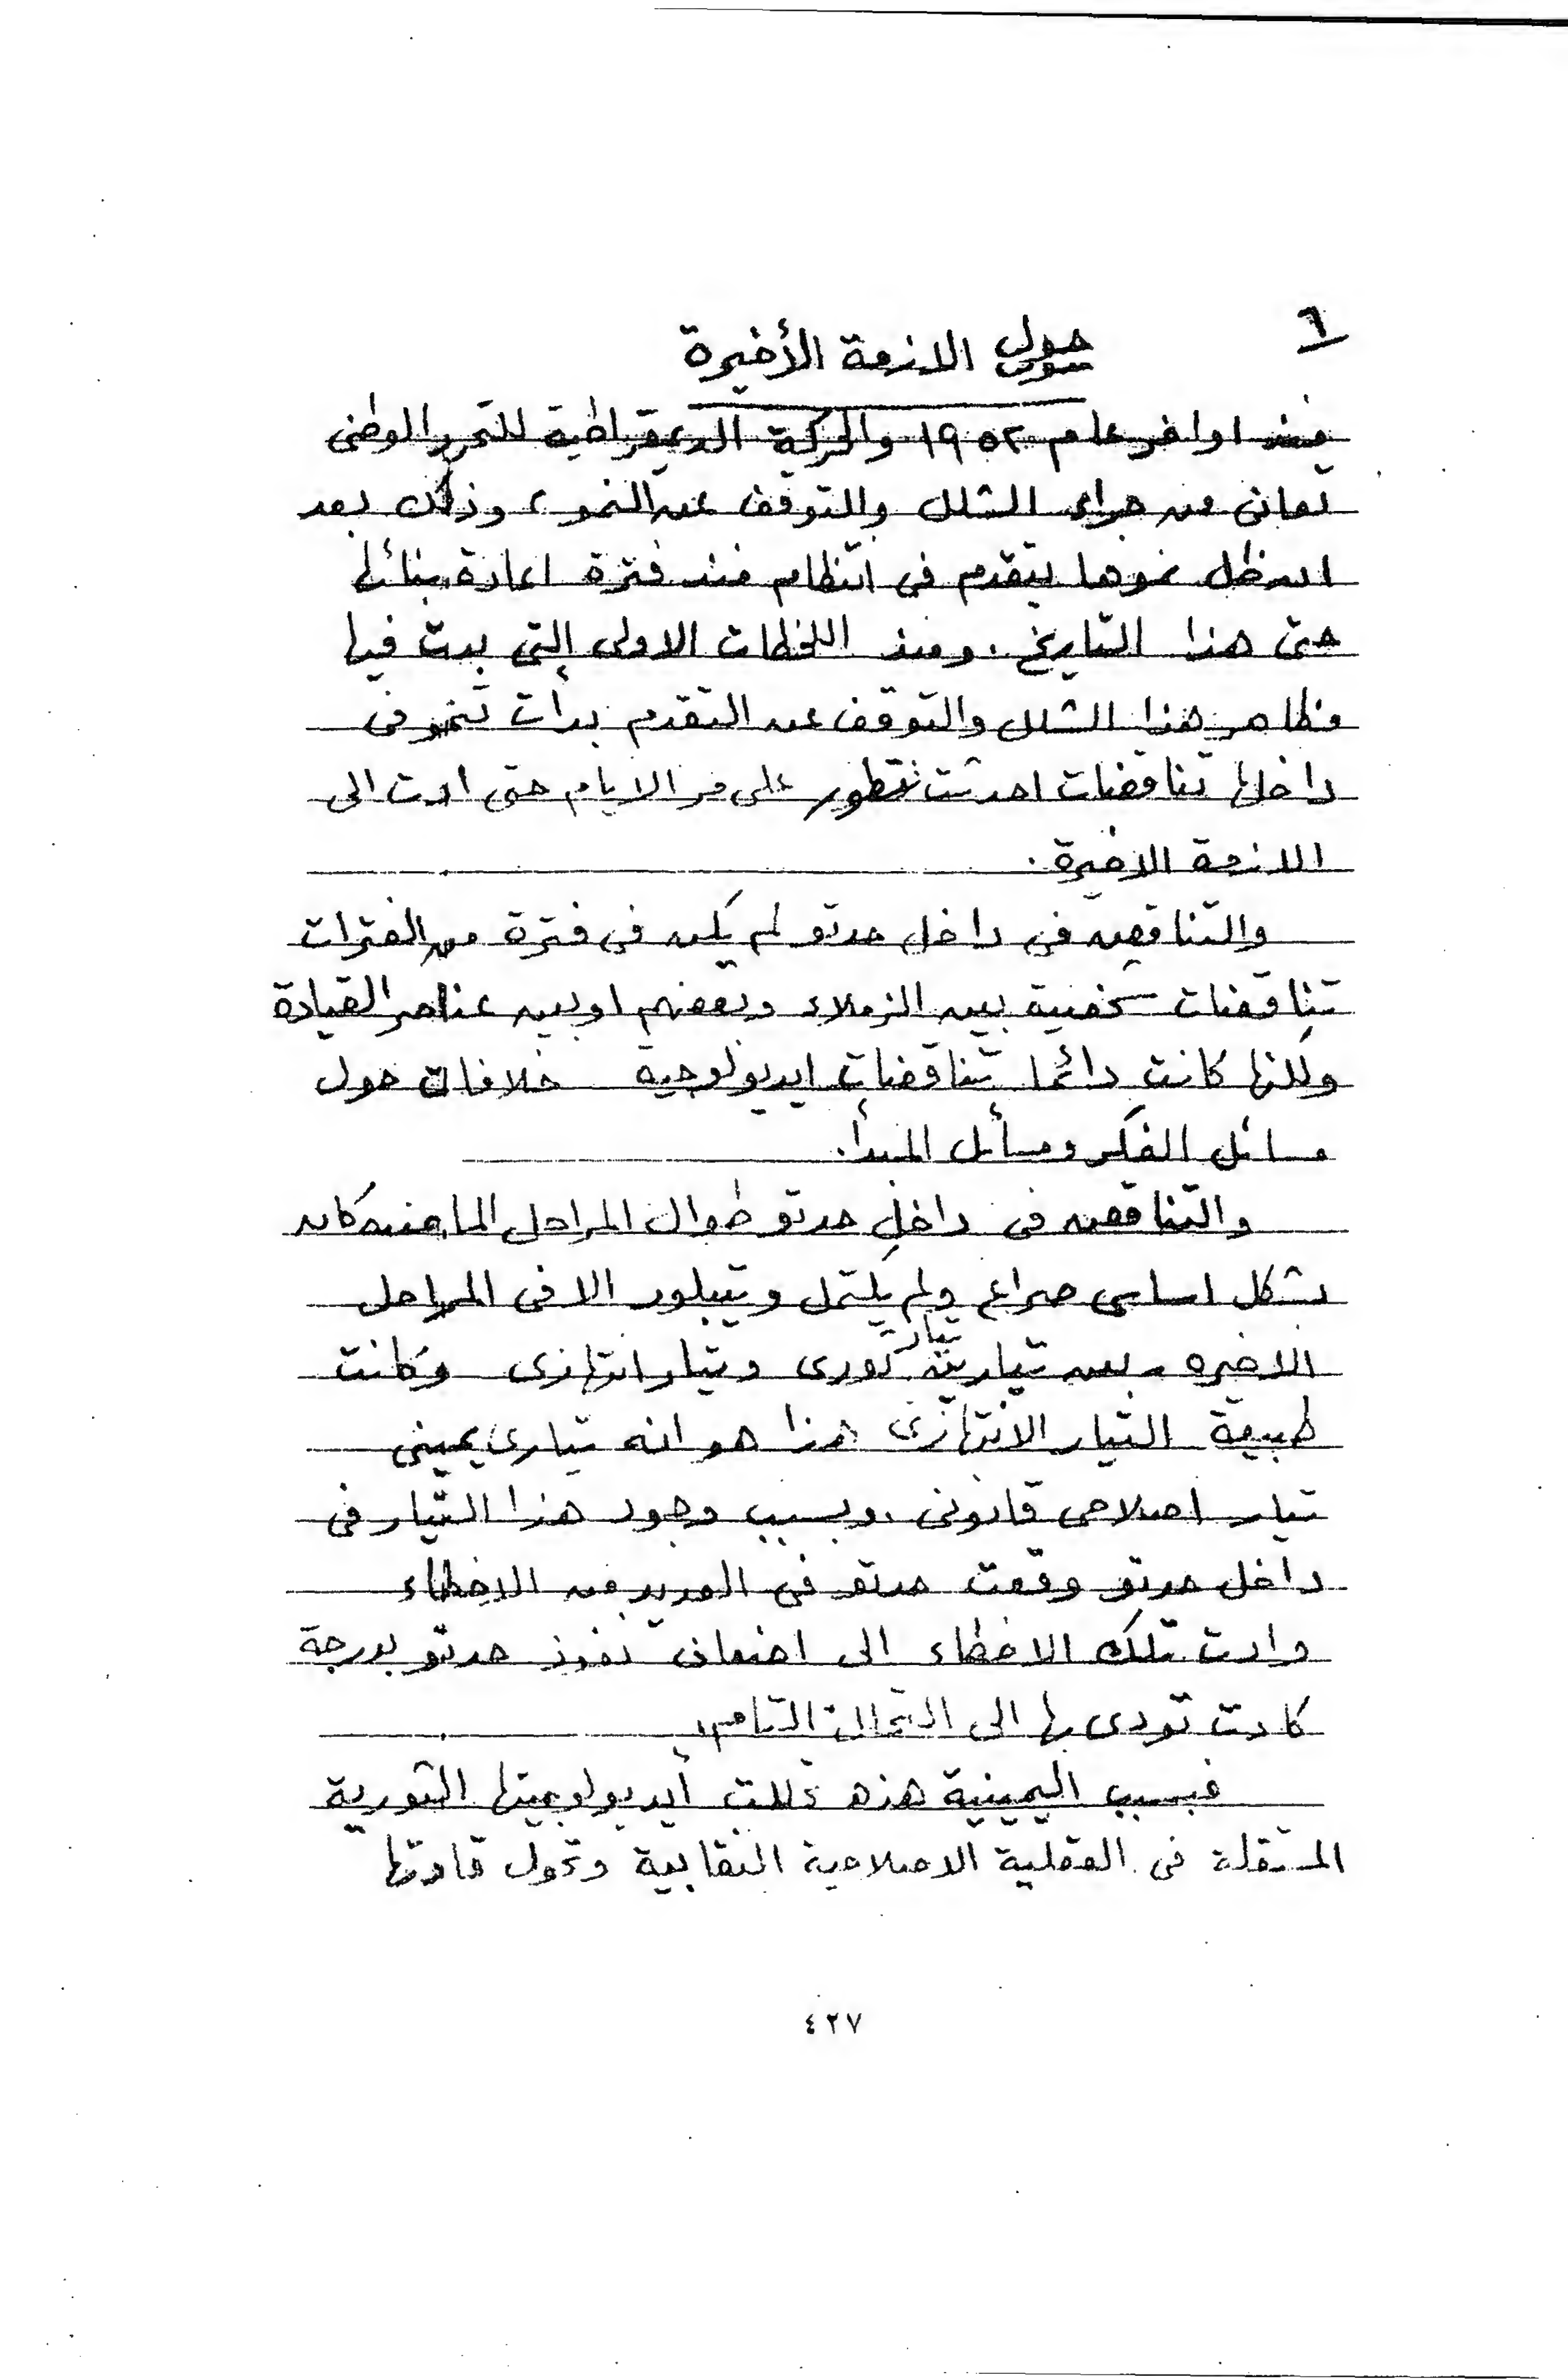 ٦
حول الازمة الأخيرة
منذ اواخر عام ١٩٥٢ والحركة الديمقراطية للتحرر الوطنى
تعانى من جراء الشلل والتوقف عن النمو، وذلك بعد
ان ظل نموها يتقدم فى انتظام منذ فترة اعادة بنائها
حتى هذا التاريخ. ومنذ اللحظات الاولى التى بدت فيها
مظاهر هذا الشلل والتوقف عن التقدم بدأت تنمو فى
داخلها تناقضات اخذت تتطور على مر الايام حتى ادت الى
الازمة الاخيرة.
والتناقض فى داخل حدتو لم يكن فى فترة من الفترات
تناقضات شخصية بين الزملاء وبعضهم او بين عناصر القيادة
ولكنها كانت دائما تناقضات ايديولوجية خلافات حول
مسائل الفكر ومسأئل المبدأ.
والتناقض فى داخل حدتو طوال المراحل الماضيه كان
بشكل اساسى صراع ولم يكتمل ويتبلور الا فى المراحل
الاخيره - بين تيارين تيار ثورى وتيار انتهازى وكانت
طبيعة التيار الانتهازى هذا هو انه تيارى يمينى
تيار اصلاحى قانونى. وبسبب وجود هذا التيار فى
داخل حدتو وقعت حدتو فى العديد من الاخطاء
وادت تلك الاخطاء الى اضعاف نفوذ حدتو بدرجة
كادت تودى بها الى التحلل التام.
فبسبب اليمينية هذه ذللت أيديولوجيتها الثورية
المستقلة فى العقلية الاصلاحية النقابية وتحول قادتها
٤٢٧